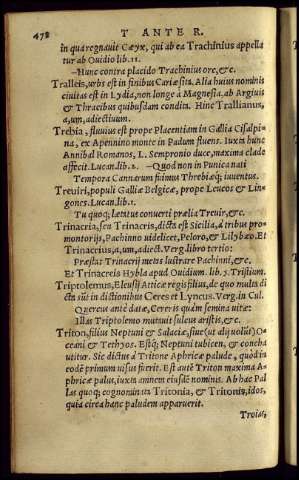 478 T ANTE R.
in qua regnauit Cæyx, qui ab ea Trachinius appella
tur ab Ouidio lib.11.
—Hunc contra placido Trachinius ore, &c.
Tralleis, urbs est in finibus Cariæ sita. Alia huius nominis
ciuitas est in Lydia, non longe à Magnesia, ab Argiuis
& Thracibus quibusdam condita. Hinc Trallianus,
a, um, adiectiuum.
Trebia, fluuius est prope Placentiam in Gallia Cisalpi-
na, ex Apennino monte in Padum fluens. Iuxta hunc
Annibal Romanos, L. Sempronio duce, maxima clade
affecit. Lucan.lib.2. —Quod non in Punica nati
Tempora Cannarum fuimus Threbiæq; iuuentus.
Treuiri, populi Galliæ Belgicæ, prope Leucos & Lin-
gones. Lucan.lib.1.
Tu quoq; lætatus conuerti prælia Treuir, &c.
Trinacria, seu Trinacris, dicta est Sicilia, à tribus pro-
montorijs, Pachinno uidelicet, Peloro, & Lilybæo. Et
Trinacrius, a, um, adiect. Verg. libro tertio:
Præstat Trinacrij metas lustrare Pachinni, &c.
Et Trinacreis Hybla apud Ouidium. lib.5. Tristium.
Triptolemus, Eleusij Atticæ regis filius, de quo multa di
cta sūt in dictionibus Ceres et Lyncus. Verg. in Cul.
Quercus antè datæ, Cereris quàm semina uitæ:
Illas Triptolemo mutauit sulcus aristis. &c.
Triton, filius Neptuni & Salaciæ, siue (ut alij uolūt) O-
ceani & Tethyos. Estq; Neptuni tubicen, & concha
utitur. Sic dictus à Tritone Aphricæ palude, quòd in
ea dē primum uisus fuerit. Est autē Triton maxima A-
phricæ palus, iuxta amnem eiusdē nominis. Ab hac Pal
las quoq; cognominata Tritonia, & Tritonis, idos,
quia circa hanc paludem apparuerit.
Troia,